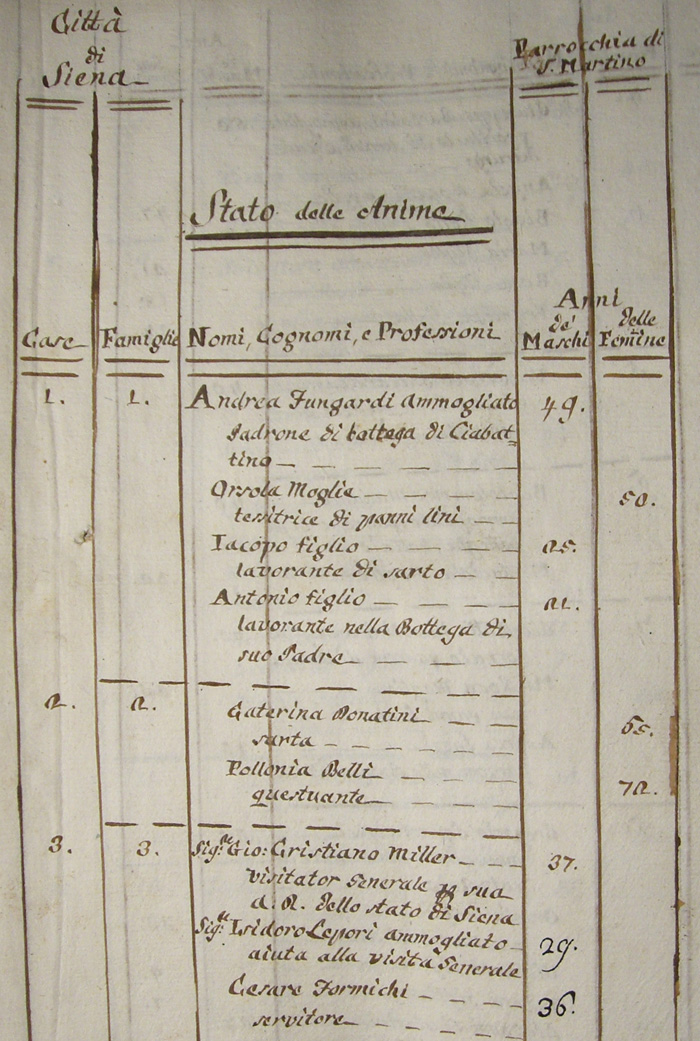 Città
di
Siena
Parrocchia di
S. Martino
Stato delle Anime
Anni
Case Famiglie Nomi, Cognomi, e Professioni de' Maschi delle Femine
1. 1. Andrea Fungardi ammogliato 49.
Padrone di bottega di Ciabat=
tino
Orsola Moglie 50.
tessitrice di panni lini
Iacopo figlio 25.
lavorante di sarto
Antonio figlio 21.
lavorante nella Bottega di
suo Padre
2. 2. Caterina Donatini 65.
sarta
Pollonia Belli 72.
questuante
3. 3. Sig.re Gio: Cristiano Miller 37.
visitator Generale p sua
A. R. dello stato di Siena
Sig.re Isidoro Lepori ammogliato 29.
aiuta alla visita Generale
Cesare Formichi 36.
servitore